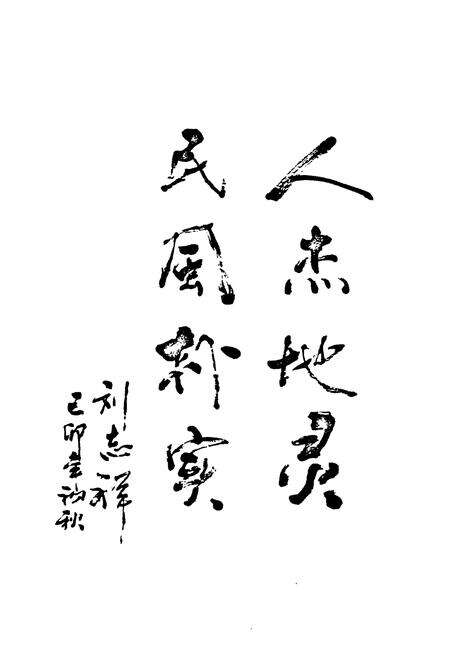 人杰地灵
民风朴实
刘志祥
己卯年初秋